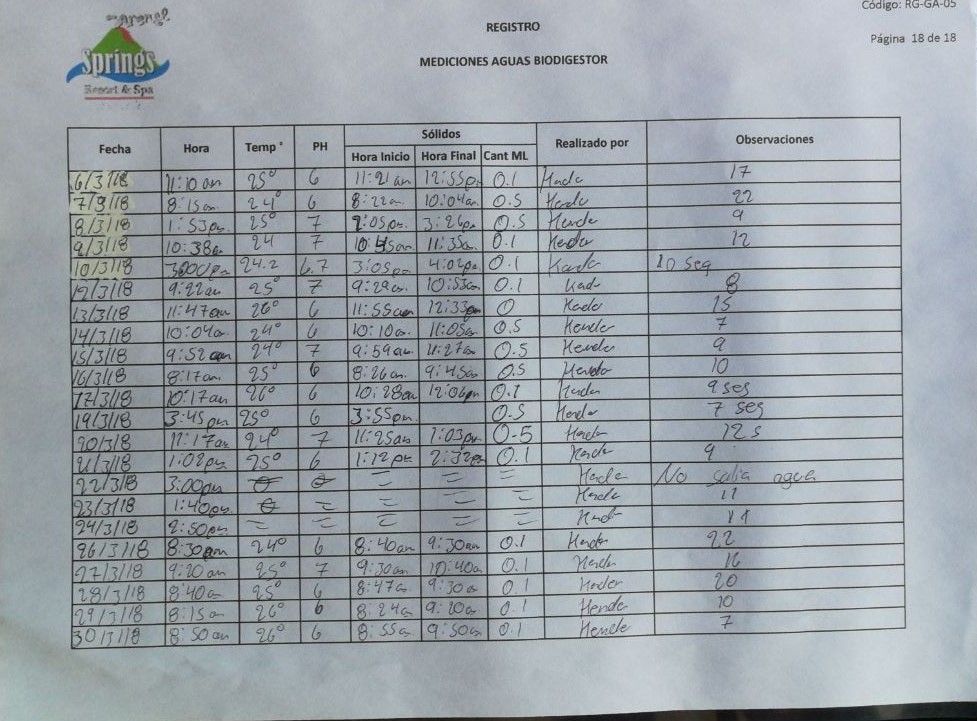 Código: RG-GA-05
Arenal
Springs
Resort & Spa
REGISTRO
Página 18 de 18
MEDICIONES AGUAS BIODIGESTOR
Fecha Hora Temp ° PH Sólidos Realizado por Observaciones
Hora Inicio Hora Final Cant ML
6/3/18 11:10 am 25° 6 11:21 am 12:55pm 0.1 17
7/3/18 8:15a 24° 6 8:22am 10:04a. 0.5 22
8/3/18 1:53pm 25° 7 2:05pm 3:26p. 0.5 9
9/3/18 10:38a 24 7 11:35a. 0.1 12
10/3/18 24.2 6.7 3:05pm 4:02pm 0.1 10 seg
9:22am 25° 7 9:29a. 10:53am 0.1 8
13/3/18 11:47am 26° 6 11:55am 12:33pm 0 15
14/3/18 10:04a. 24° 6 10:10a. 11:05a. 0.5 7
15/3/18 9:52am 24° 7 9:59am 11:27a. 0.5 9
16/3/18 8:17am 25° 6 8:26a. 9:45a 0.5 10
17/3/18 10:17am 26° 6 10:28am 12:02pm 0.1 9 ses
19/3/18 3:45pm 25° 6 3:55pm. 0.5 7 seg
20/3/18 11:17am 24° 7 11:25am 1:03pm 0.5 12s
21/3/18 1:02pm 25° 6 1:12pm 2:32pm 0.1 9
22/3/18 3:00pm = = = No salia agua
23/3/18 1:40pm = = = = 11
24/3/18 2:50pm = = = = = 14
26/3/18 8:30am 24° 6 8:40am 9:30am 0.1 22
27/3/18 9:20am 25° 7 9:30am 10:40a 0.1 16
28/3/18 8:40a 25° 6 8:47a 9:30a 0.1 20
29/3/18 8:15a 26° 6 8:24a 9:10a 0.1 10
30/3/18 8:50am 26° 6 8:55a 9:50a 0.1 7